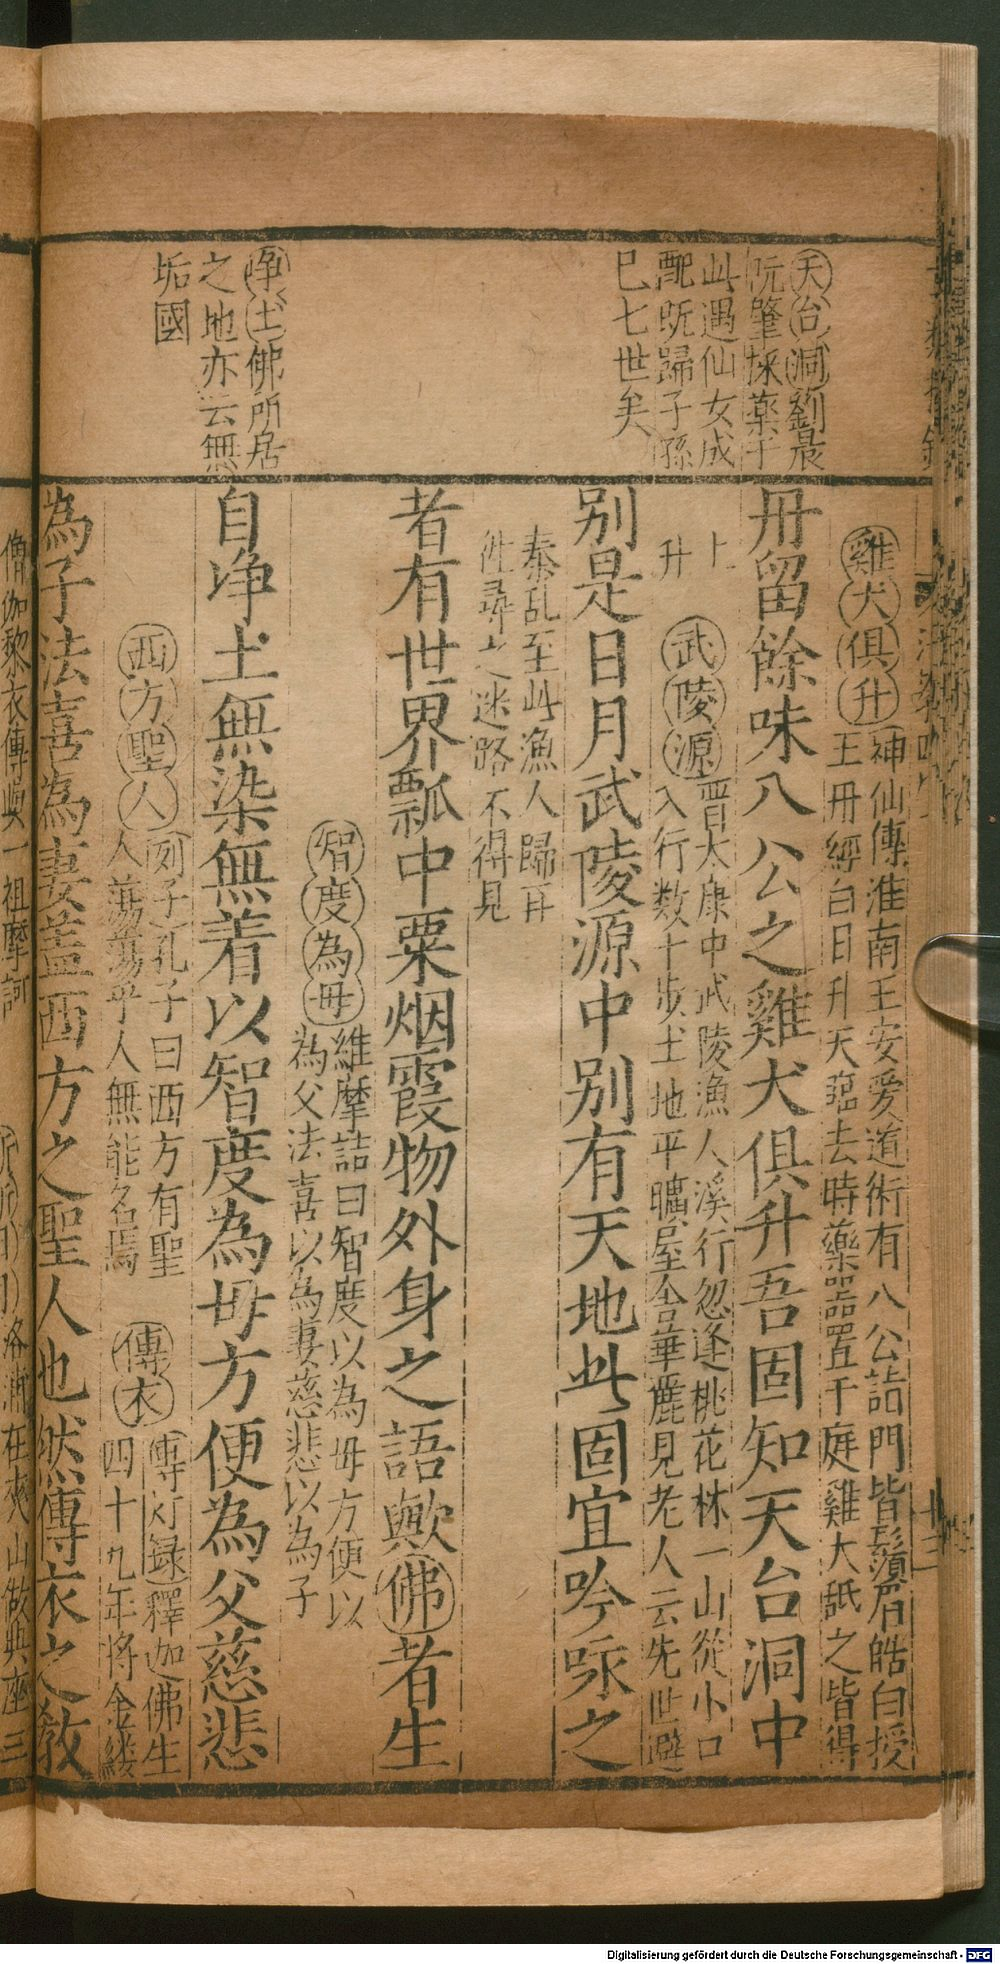 天台洞劉晨
阮肇採薬于
此遇仙女成
配既歸子孫
巳七世矣
淨土佛所居
之地亦云無
垢國
雞犬俱升神仙傳淮南王安爱道術有八公詣門皆鬚眉皓白授
王丹經白日升天臨去時藥器置于庭雞犬舐之皆得
丹留餘味八公之雞犬俱升吾固知天台洞中
上
升
武陵源晋太康中武陵漁人溪行忽逢桃花林一山從小口
入行数十步土地平曠屋舍華麗見老人云先世避
别是日月武陵源中别有天地此固宜吟咏之
秦乱至此漁人歸再
徃尋之迷路不得見
者有世界瓢中粟烟霞物外身之語歟佛者生
智度為母維摩詰曰智度以為母方便以
為父法喜以為妻慈悲以為子
自净土無染無着以智度為母方便為父慈悲
西方聖人列子孔子曰西方有聖
人蕩蕩乎人無能名焉
傳衣傳灯録釋迦佛生
四十九年将金縷
為子法喜為妻盖西方之聖人也然傳衣之教
僧伽黎衣傳與一祖摩訶
洛浦在夾山做典座三
Digitalisierung gefördert durch die Deutsche Forschungsgemeinschaft - DFG